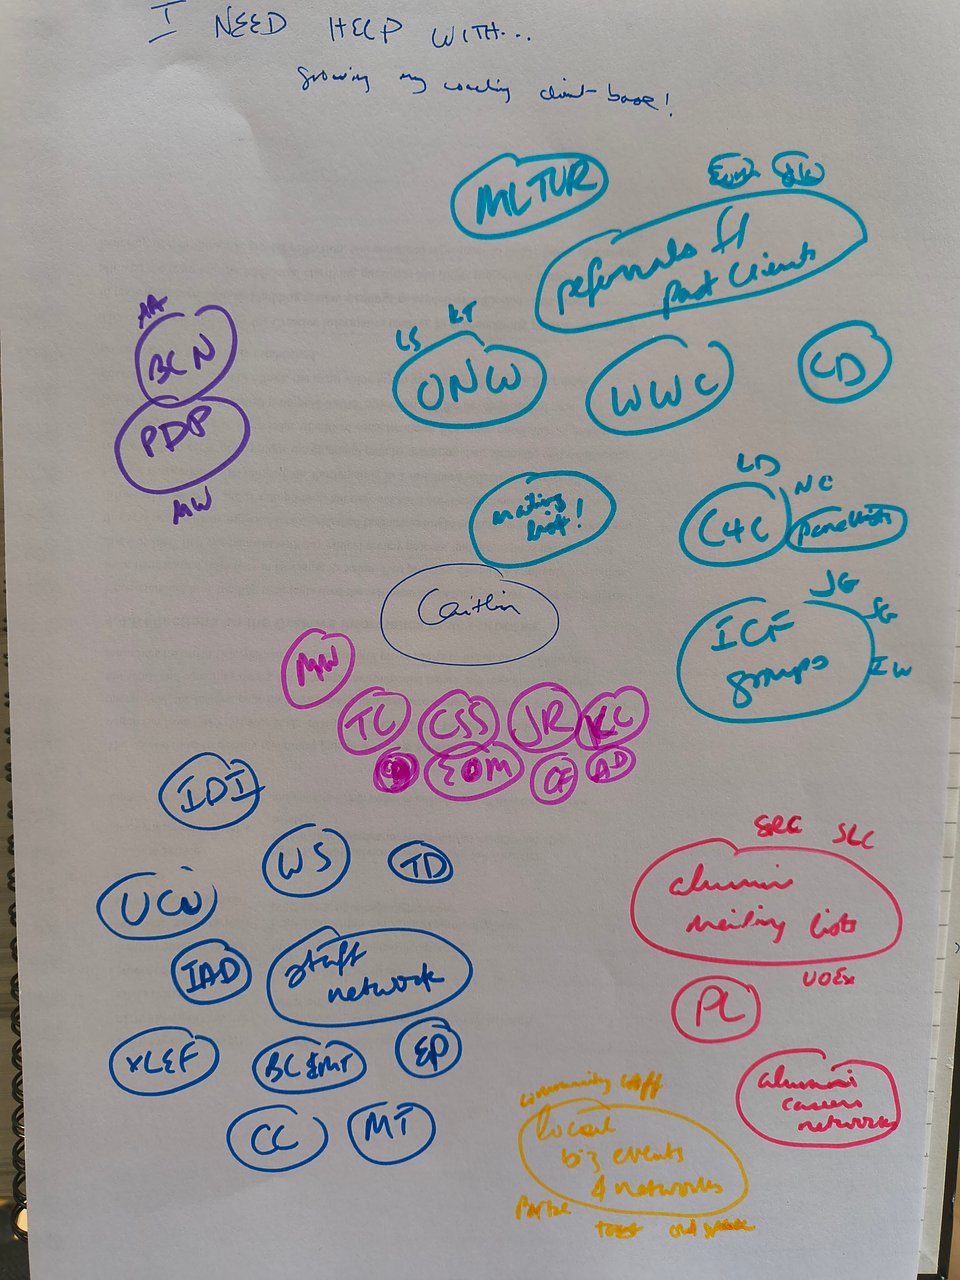 I NEED HELP WITH...
growing my coaching client base!
MLTUR
referrals f/
past clients
AA
BCN
PDP
MW
LS KT
ONW
WWC
CD
mailing
list!
LD
C4C
NC
panellists
Caitlin
ICF
groups
JG
SG
IW
MW
TC
CSS
JR
KC
EOM
CF
AD
IDI
WS
TD
UCW
IAD
staff
network
XLEF
EP
CC
MT
SRC SLC
alumni
mailing lists
UOEx
PL
alumni
careers
networks
community
local
biz events
& networks